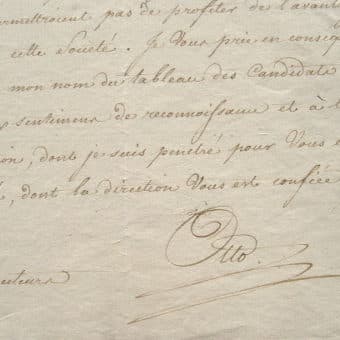 rmettroient pas de profiter de l'avant
cette Société. Je Vous prie en conseq
mon nom du tableau des Candidats
sentimens de reconnoissance et à l
ion, dont je suis pénétré pour Vous e
, dont la direction Vous est confiée
Otto.
cuteurs